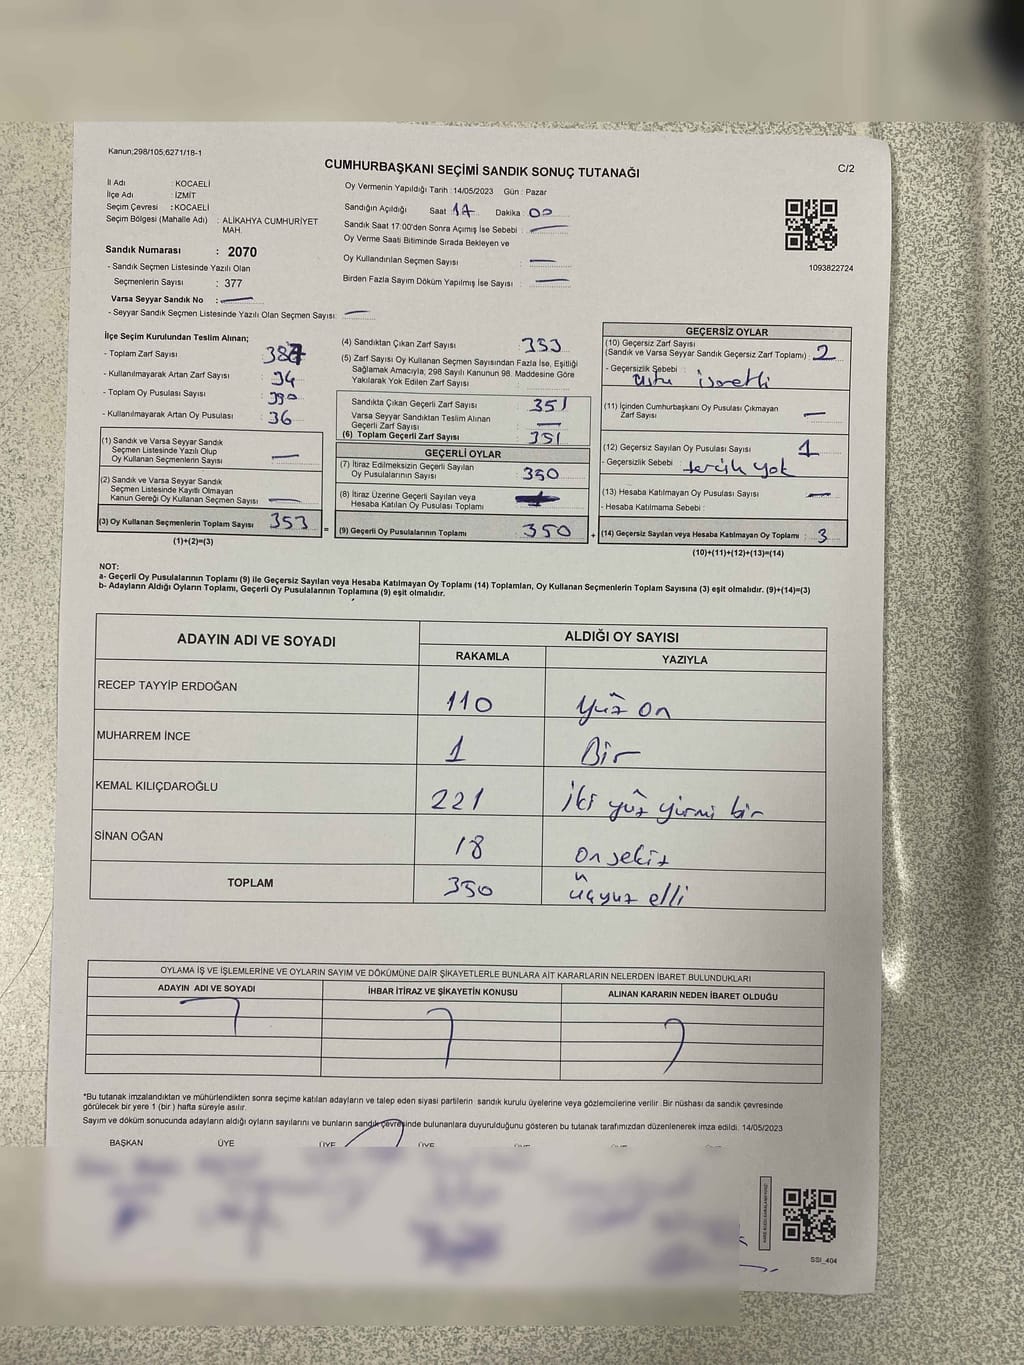 Kanun;298/105,6271/18-1
CUMHURBAŞKANI SEÇİMİ SANDIK SONUÇ TUTANAĞI
C/2
İl Adı : KOCAELİ
İlçe Adı : İZMİT
Seçim Çevresi : KOCAELİ
Seçim Bölgesi (Mahalle Adı) : ALİKAHYA CUMHURİYET
MAH.
Sandık Numarası : 2070
- Sandık Seçmen Listesinde Yazılı Olan
Seçmenlerin Sayısı : 377
Varsa Seyyar Sandık No :
- Seyyar Sandık Seçmen Listesinde Yazılı Olan Seçmen Sayısı:
Oy Vermenin Yapıldığı Tarih : 14/05/2023 Gün : Pazar
Sandığın Açıldığı Saat 17 Dakika : 00
Sandık Saat 17:00'den Sonra Açımış İse Sebebi :
Oy Verme Saati Bitiminde Sırada Bekleyen ve
Oy Kullandırılan Seçmen Sayısı :
Birden Fazla Sayım Döküm Yapılmış İse Sayısı :
1093822724
İlçe Seçim Kurulundan Teslim Alınan;
- Toplam Zarf Sayısı : 387
- Kullanılmayarak Artan Zarf Sayısı : 34
- Toplam Oy Pusulası Sayısı : 390
- Kullanılmayarak Artan Oy Pusulası : 36
(1) Sandık ve Varsa Seyyar Sandık
Seçmen Listesinde Yazılı Olup
Oy Kullanan Seçmenlerin Sayısı :
(2) Sandık ve Varsa Seyyar Sandık
Seçmen Listesinde Kayıtlı Olmayan
Kanun Gereği Oy Kullanan Seçmen Sayısı :
(3) Oy Kullanan Seçmenlerin Toplam Sayısı : 353
(1)+(2)=(3)
(4) Sandıktan Çıkan Zarf Sayısı : 353
(5) Zarf Sayısı Oy Kullanan Seçmen Sayısından Fazla İse, Eşitliği
Sağlamak Amacıyla, 298 Sayılı Kanunun 98. Maddesine Göre
Yakılarak Yok Edilen Zarf Sayısı :
Sandıkta Çıkan Geçerli Zarf Sayısı : 351
Varsa Seyyar Sandıktan Teslim Alınan
Geçerli Zarf Sayısı :
(6) Toplam Geçerli Zarf Sayısı : 351
GEÇERLİ OYLAR
(7) İtiraz Edilmeksizin Geçerli Sayılan
Oy Pusulalarının Sayısı : 350
(8) İtiraz Üzerine Geçerli Sayılan veya
Hesaba Katılan Oy Pusulası Toplamı :
= (9) Geçerli Oy Pusulalarının Toplamı : 350
GEÇERSİZ OYLAR
(10) Geçersiz Zarf Sayısı
(Sandık ve Varsa Seyyar Sandık Geçersiz Zarf Toplamı) : 2
- Geçersizlik Sebebi :
üstü işaretli
(11) İçinden Cumhurbaşkanı Oy Pusulası Çıkmayan
Zarf Sayısı :
(12) Geçersiz Sayılan Oy Pusulası Sayısı : 1
- Geçersizlik Sebebi : tercih yok
(13) Hesaba Katılmayan Oy Pusulası Sayısı :
- Hesaba Katılmama Sebebi :
+ (14) Geçersiz Sayılan veya Hesaba Katılmayan Oy Toplamı : 3
(10)+(11)+(12)+(13)=(14)
NOT:
a- Geçerli Oy Pusulalarının Toplamı (9) ile Geçersiz Sayılan veya Hesaba Katılmayan Oy Toplamı (14) Toplamları, Oy Kullanan Seçmenlerin Toplam Sayısına (3) eşit olmalıdır. (9)+(14)=(3)
b- Adayların Aldığı Oyların Toplamı, Geçerli Oy Pusulalarının Toplamına (9) eşit olmalıdır.
ADAYIN ADI VE SOYADI ALDIĞI OY SAYISI
RAKAMLA YAZIYLA
RECEP TAYYİP ERDOĞAN 110 Yüz on
MUHARREM İNCE 1 Bir
KEMAL KILIÇDAROĞLU 221 iki yüz yirmi bir
SİNAN OĞAN 18 On sekiz
TOPLAM 350 üçyüz elli
OYLAMA İŞ VE İŞLEMLERİNE VE OYLARIN SAYIM VE DÖKÜMÜNE DAİR ŞİKAYETLERLE BUNLARA AİT KARARLARIN NELERDEN İBARET BULUNDUKLARI
ADAYIN ADI VE SOYADI İHBAR İTİRAZ VE ŞİKAYETİN KONUSU ALINAN KARARIN NEDEN İBARET OLDUĞU
*Bu tutanak imzalandıktan ve mühürlendikten sonra seçime katılan adayların ve talep eden siyasi partilerin sandık kurulu üyelerine veya gözlemcilerine verilir. Bir nüshası da sandık çevresinde
görülecek bir yere 1 (bir ) hafta süreyle asılır.
Sayım ve döküm sonucunda adayların aldığı oyların sayılarını ve bunların sandık çevresinde bulunanlara duyurulduğunu gösteren bu tutanak tarafımızdan düzenlenerek imza edildi. 14/05/2023
BAŞKAN ÜYE ÜYE ÜYE
SSI_404